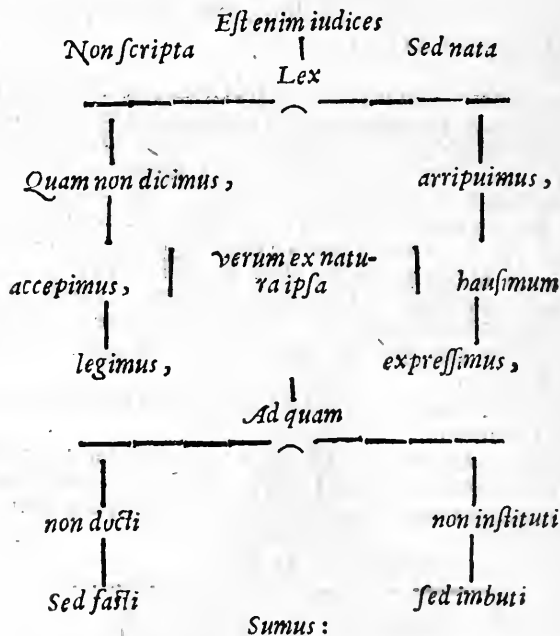 Eſt enim iudices
Non ſcripta Sed nata
Lex
Quam non dicimus, arripuimus,
accepimus, verum ex natu- hauſimum
ra ipſa
legimus, expreſſimus,
Ad quam
non docti non inſtituti
Sed facti ſed imbuti
Sumus: